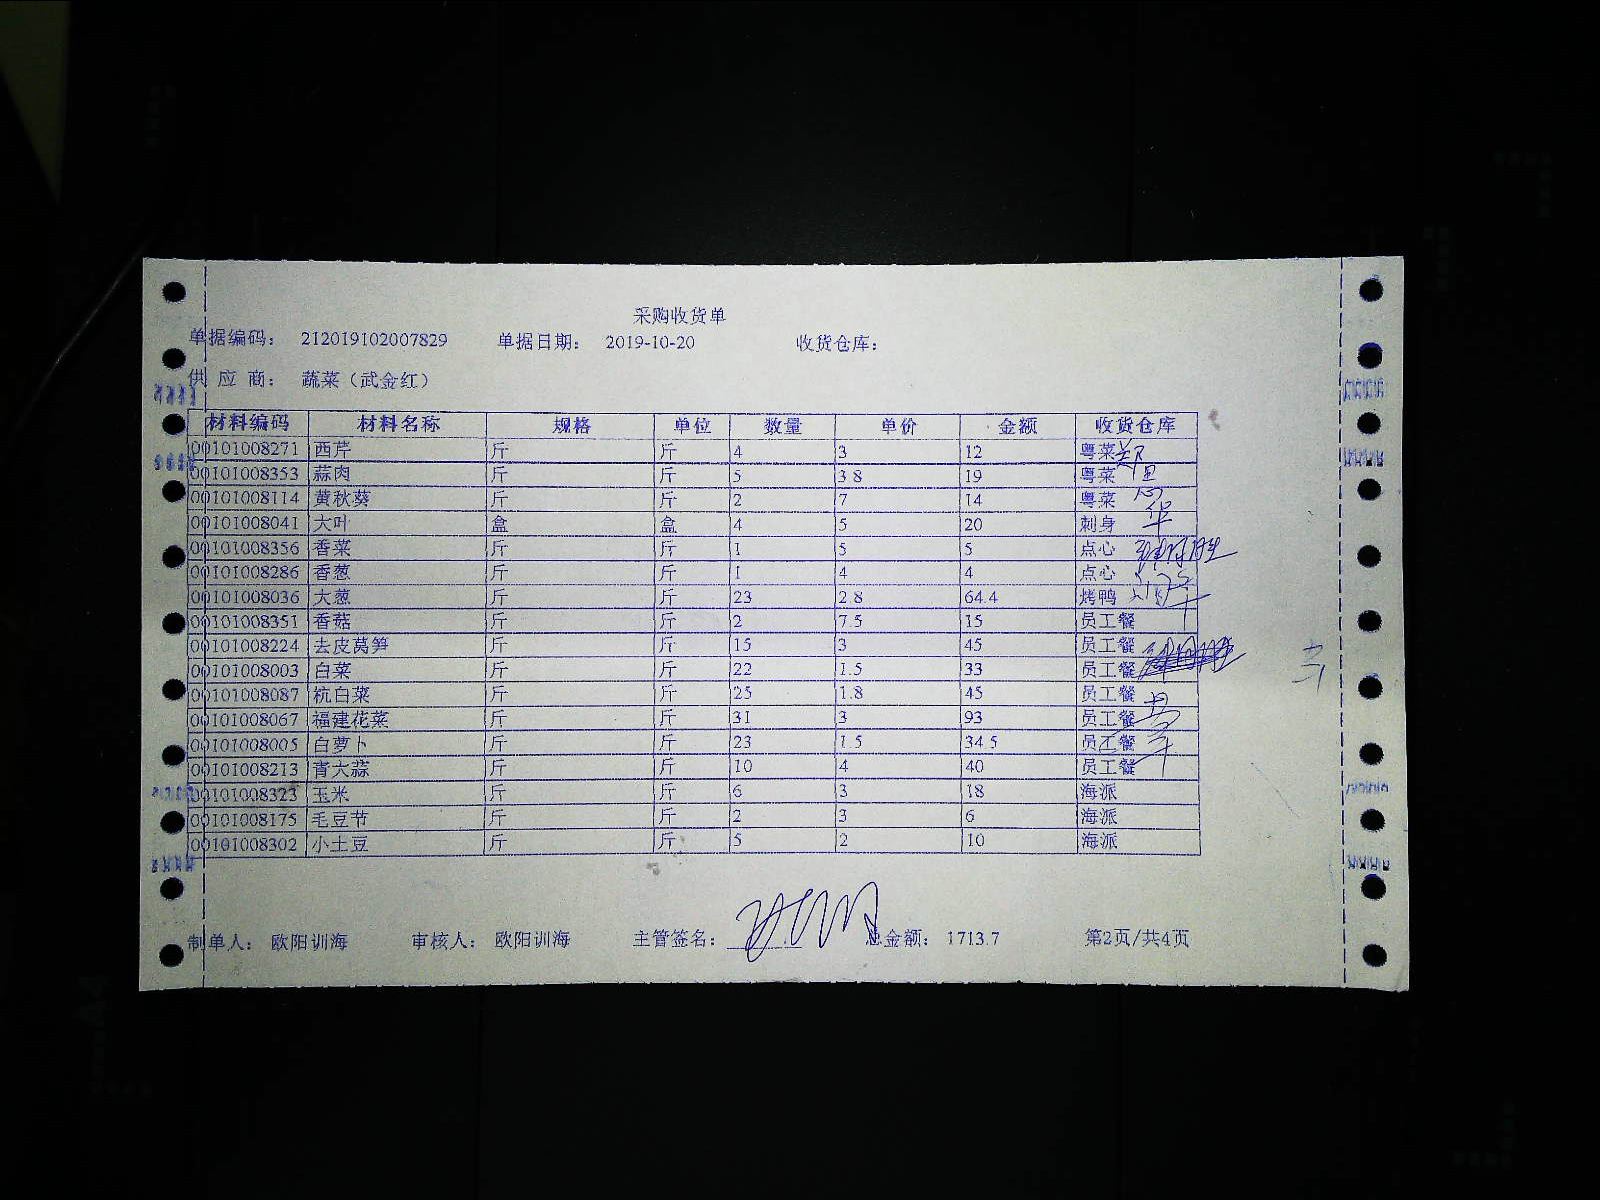 采购收货单
单据编码： 212019102007829 单据日期： 2019-10-20 收货仓库：
供 应 商： 蔬菜（武金红）
材料编码 材料名称 规格 单位 数量 单价 金额 收货仓库
00101008271 西芹 斤 斤 4 3 12 粤菜
00101008353 蒜肉 斤 斤 5 3.8 19 粤菜
00101008114 黄秋葵 斤 斤 2 7 14 粤菜
00101008041 大叶 盒 盒 4 5 20 刺身
00101008356 香菜 斤 斤 1 5 5 点心
00101008286 香葱 斤 斤 1 4 4 点心
00101008036 大葱 斤 斤 23 2.8 64.4 烤鸭
00101008351 香菇 斤 斤 2 7.5 15 员工餐
00101008224 去皮莴笋 斤 斤 15 3 45 员工餐
00101008003 白菜 斤 斤 22 1.5 33 员工餐
00101008087 杭白菜 斤 斤 25 1.8 45 员工餐
00101008067 福建花菜 斤 斤 31 3 93 员工餐
00101008005 白萝卜 斤 斤 23 1.5 34.5 员工餐
00101008213 青大蒜 斤 斤 10 4 40 员工餐
00101008323 玉米 斤 斤 6 3 18 海派
00101008175 毛豆节 斤 斤 2 3 6 海派
00101008302 小土豆 斤 斤 5 2 10 海派
制单人： 欧阳训海 审核人： 欧阳训海 主管签名： 总金额： 1713.7 第2页/共4页